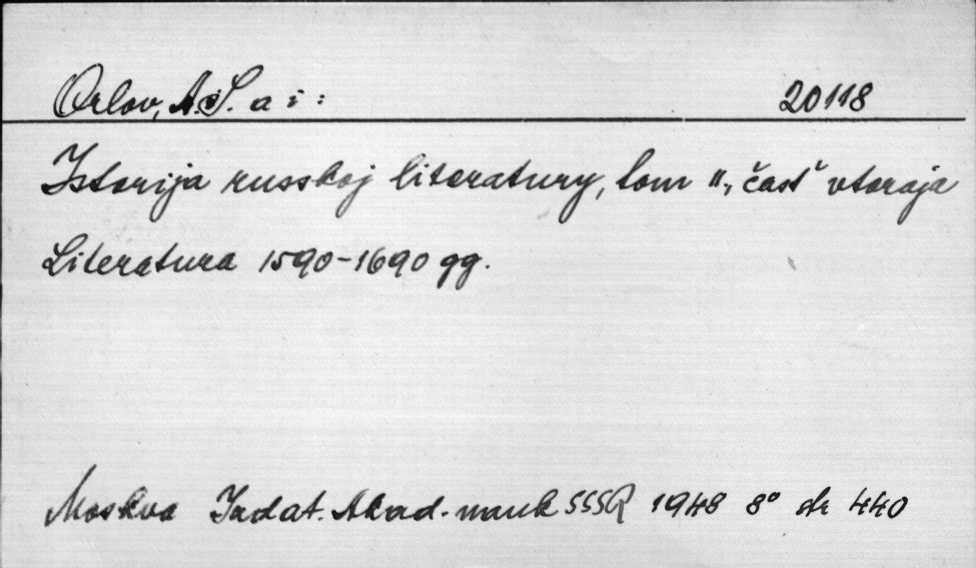 Orlov, A.S. a i : 20118
Istorija russkoj literatury, tom II., čast' vtoraja
Literatura 1590-1690 gg.
Moskva Izdat. Akad. nauk SSSR 1948 8° str 440